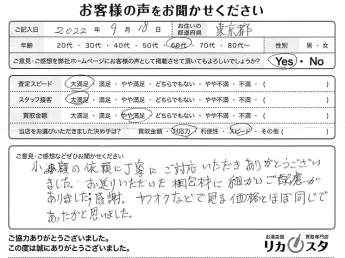 お客様の声をお聞かせください
ご記入日 2022年 9月 18日 お住いの都道府県 東京都
年齢 20代・30代・40代・50代・60代・70代・80代〜 性別 男・女
ご意見・ご感想を弊社ホームページにお客様の声として掲載させて頂いてもよろしいでしょうか? Yes・No
査定スピード 大満足・満足・やや満足・どちらでもない・やや不満・不満・( )
スタッフ接客 大満足・満足・やや満足・どちらでもない・やや不満・不満・( )
買取金額 大満足・満足・やや満足・どちらでもない・やや不満・不満・( )
当店をお選びいただきました決め手は? 買取金額・対応力・利便性・スピード・その他( )
ご意見・ご感想などぜひお聞かせください
小額の依頼に丁寧にご対応いただきありがとうござい
ました。お送りいただいた梱包材に細かいご配慮が
ありました。感謝。ヤフオクなどで見る価格とほぼ同じで
あったかと思いました。
ご協力ありがとうございました。
この度は誠にありがとうございました。
お酒高価買取専門店
リカスタ